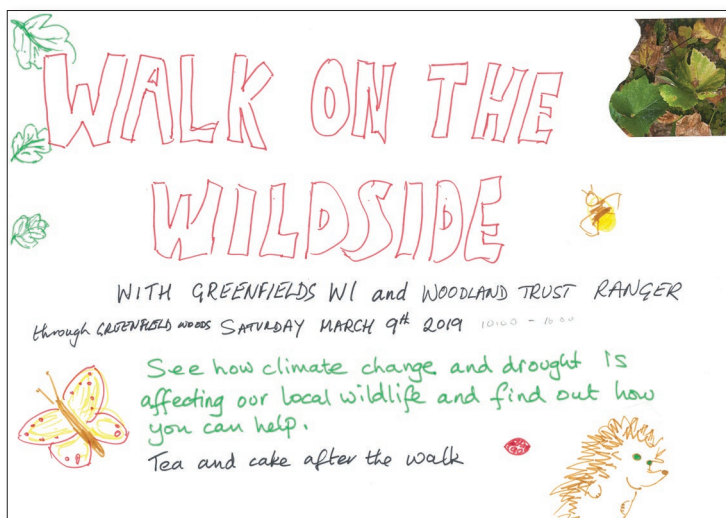 WALK ON THE
WILDSIDE
WITH GREENFIELDS WI and WOODLAND TRUST RANGER
through GREENFIELD WOODS SATURDAY MARCH 9th 2019 10:00 -
See how climate change and drought is
affecting our local wildlife and find out how
you can help.
Tea and cake after the walk